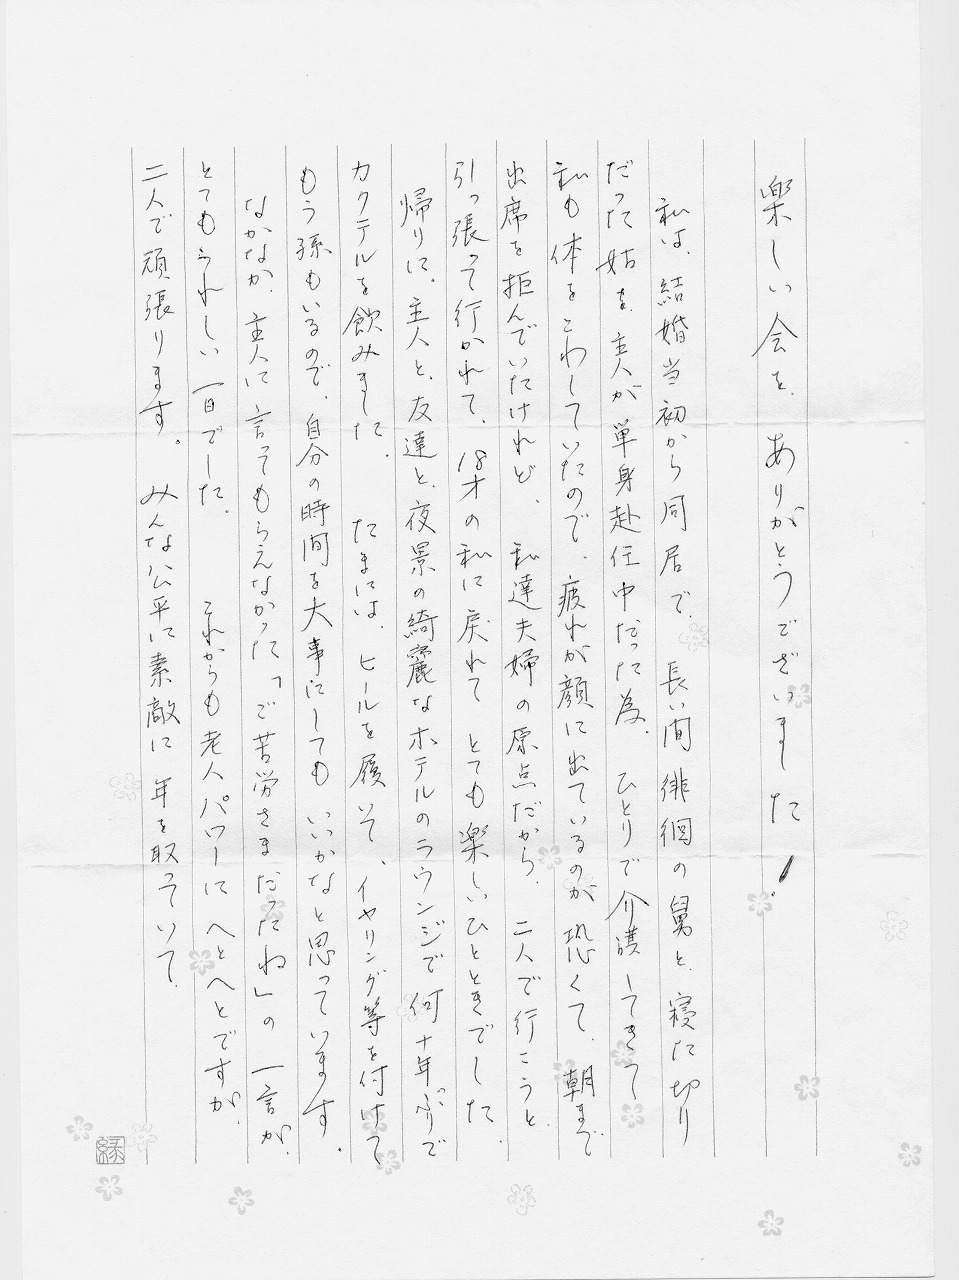 楽しい会を、ありがとうございました!
私は、結婚当初から同居で、長い間徘徊の舅と、寝た切り
だった姑を、主人が単身赴任中だった為、ひとりで介護してきて
私も体をこわしていたので、疲れが顔に出ているのが恐くて、朝まで
出席を拒んでいたけれど、私達夫婦の原点だから、二人で行こうと
引っ張って行かれて、18才の私に戻れて とても楽しいひとときでした。
帰りに、主人と、友達と、夜景の綺麗なホテルのラウンジで何十年ぶりで
カクテルを飲みました。 たまには、ヒールを履いて、イヤリング等を付けて
もう孫もいるので、自分の時間を大事にしても いいかなと思っています。
なかなか、主人に言ってもらえなかった「ご苦労さまだったね」の一言が、
とてもうれしい一日でした。 これからも老人パワーにへとへとですが、
二人で頑張ります。 みんな公平に素敵に 年を取っていて、
縁